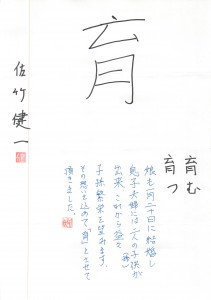 育
育む
育つ
娘も一月二十日に結婚し
息子夫婦には二人の子供が(孫)
出来、これから益々
子孫繁栄を望みます。
その想いを込めて「育」とさせて
頂きました。
佐竹健一